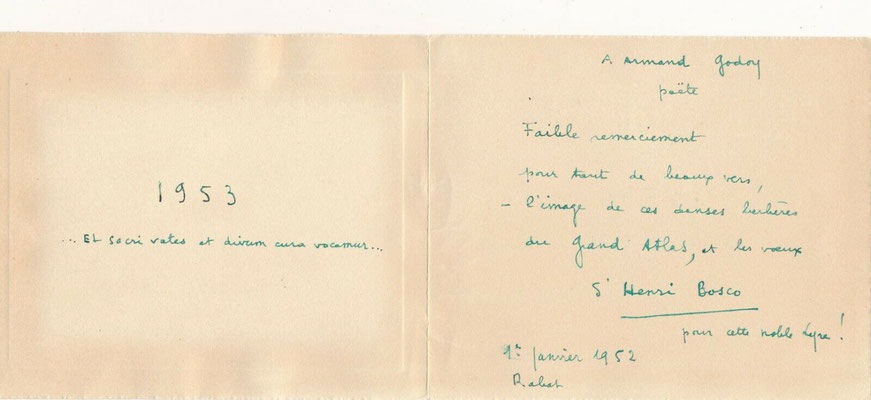 1953
... Et sacri vates et divum cura vocamur...
A Armand Godoy
poëte
Faible remerciement
pour tant de beaux vers,
– l'image de ces danses berbères
du Grand Atlas, et les vœux
d'Henri Bosco
pour cette noble Lyre !
1er janvier 1952
Rabat